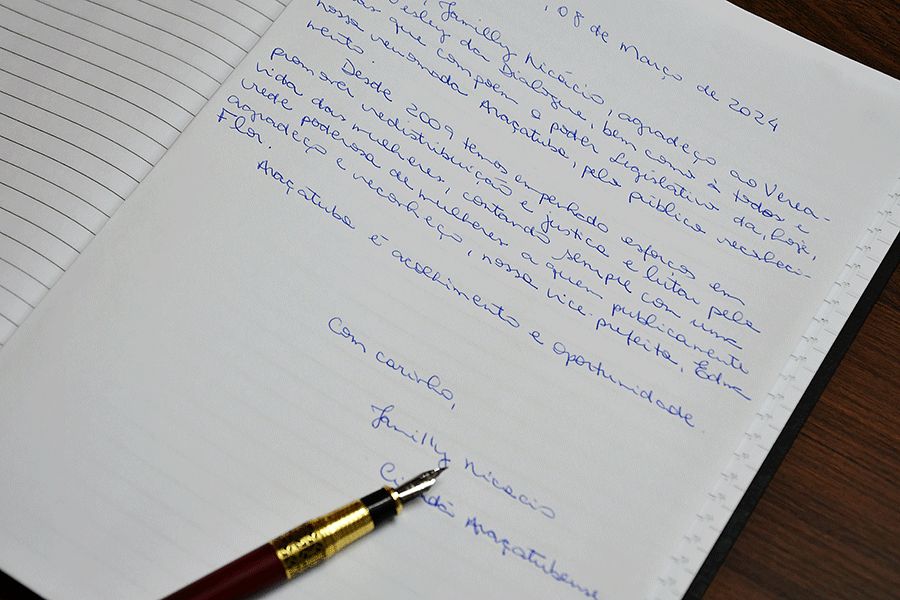 , 08 de Março de 2024
, Jamilly Nicácio, agradeço ao Verea-
Wesley da Dialogue, bem como à todos e
que compoem o poder legislativo da, hoje,
nossa renomada Araçatuba, pelo público reconheci-
mento.
Desde 2009 temos empenhado esforços em
promover redistribuição e justiça e lutar pela
vida das mulheres, contando sempre com uma
rede poderosa de mulheres a quem publicamente
agradeço e reconheço, nossa vice-prefeita, Edna
Flor.
Araçatuba é acolhimento e oportunidade.
Com carinho,
Jamilly Nicácio
Cidadã Araçatubense